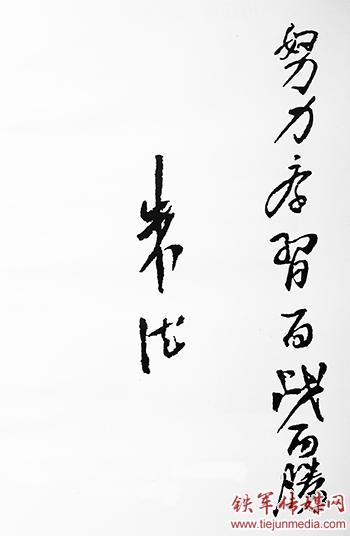 努力学習百战百勝
铁军传媒网
www.tiejunmedia.com